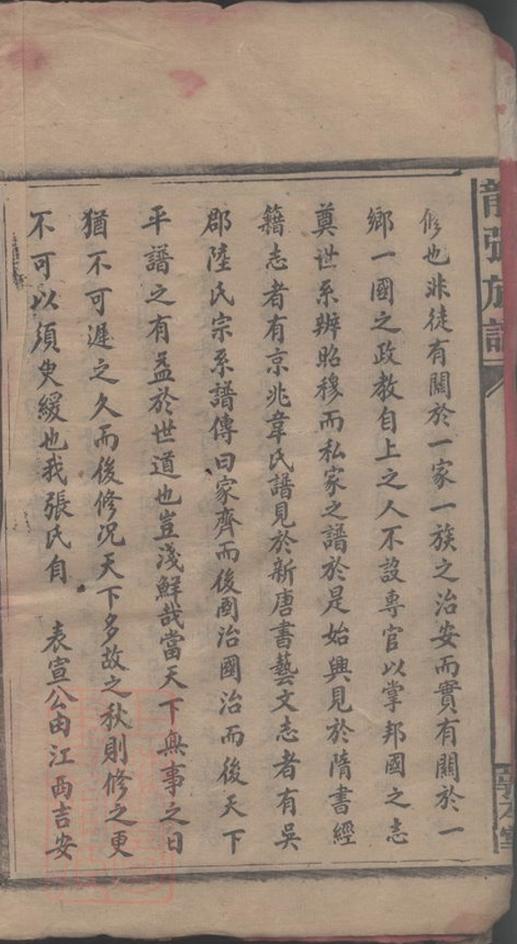 修也非徒有關於一家一族之治安而實有關於一
鄉一國之政教自上之人不設專官以掌邦國之志
奠世系辨昭穆而私家之譜於是始興見於隋書經
籍志者有京兆韋氏譜見於新唐書藝文志者有吳
郡陸氏宗系譜傳曰家齊而後國治國治而後天下
平譜之有益於世道也豈淺鮮哉當天下無事之日
猶不可遲之久而後修况天下多故之秋則修之更
不可以須臾緩也我張氏自 表宣公由江西吉安
張族譜